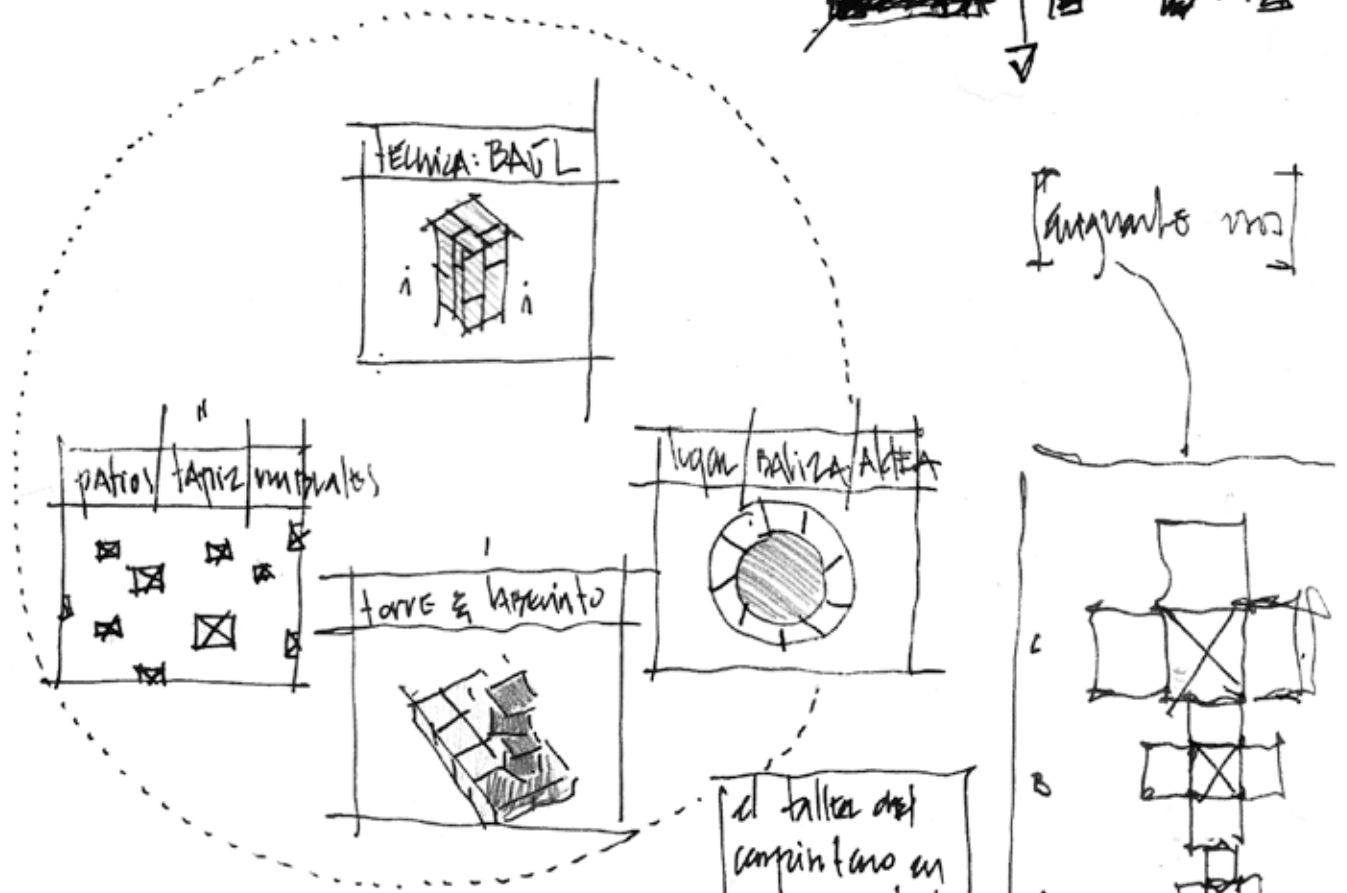 tÉCNICA: BAÚL
i i
patios tapiz umbrales
lugar BALiZA ALtEA
torre & lABErinto
C
B
el taller del
carpintero en